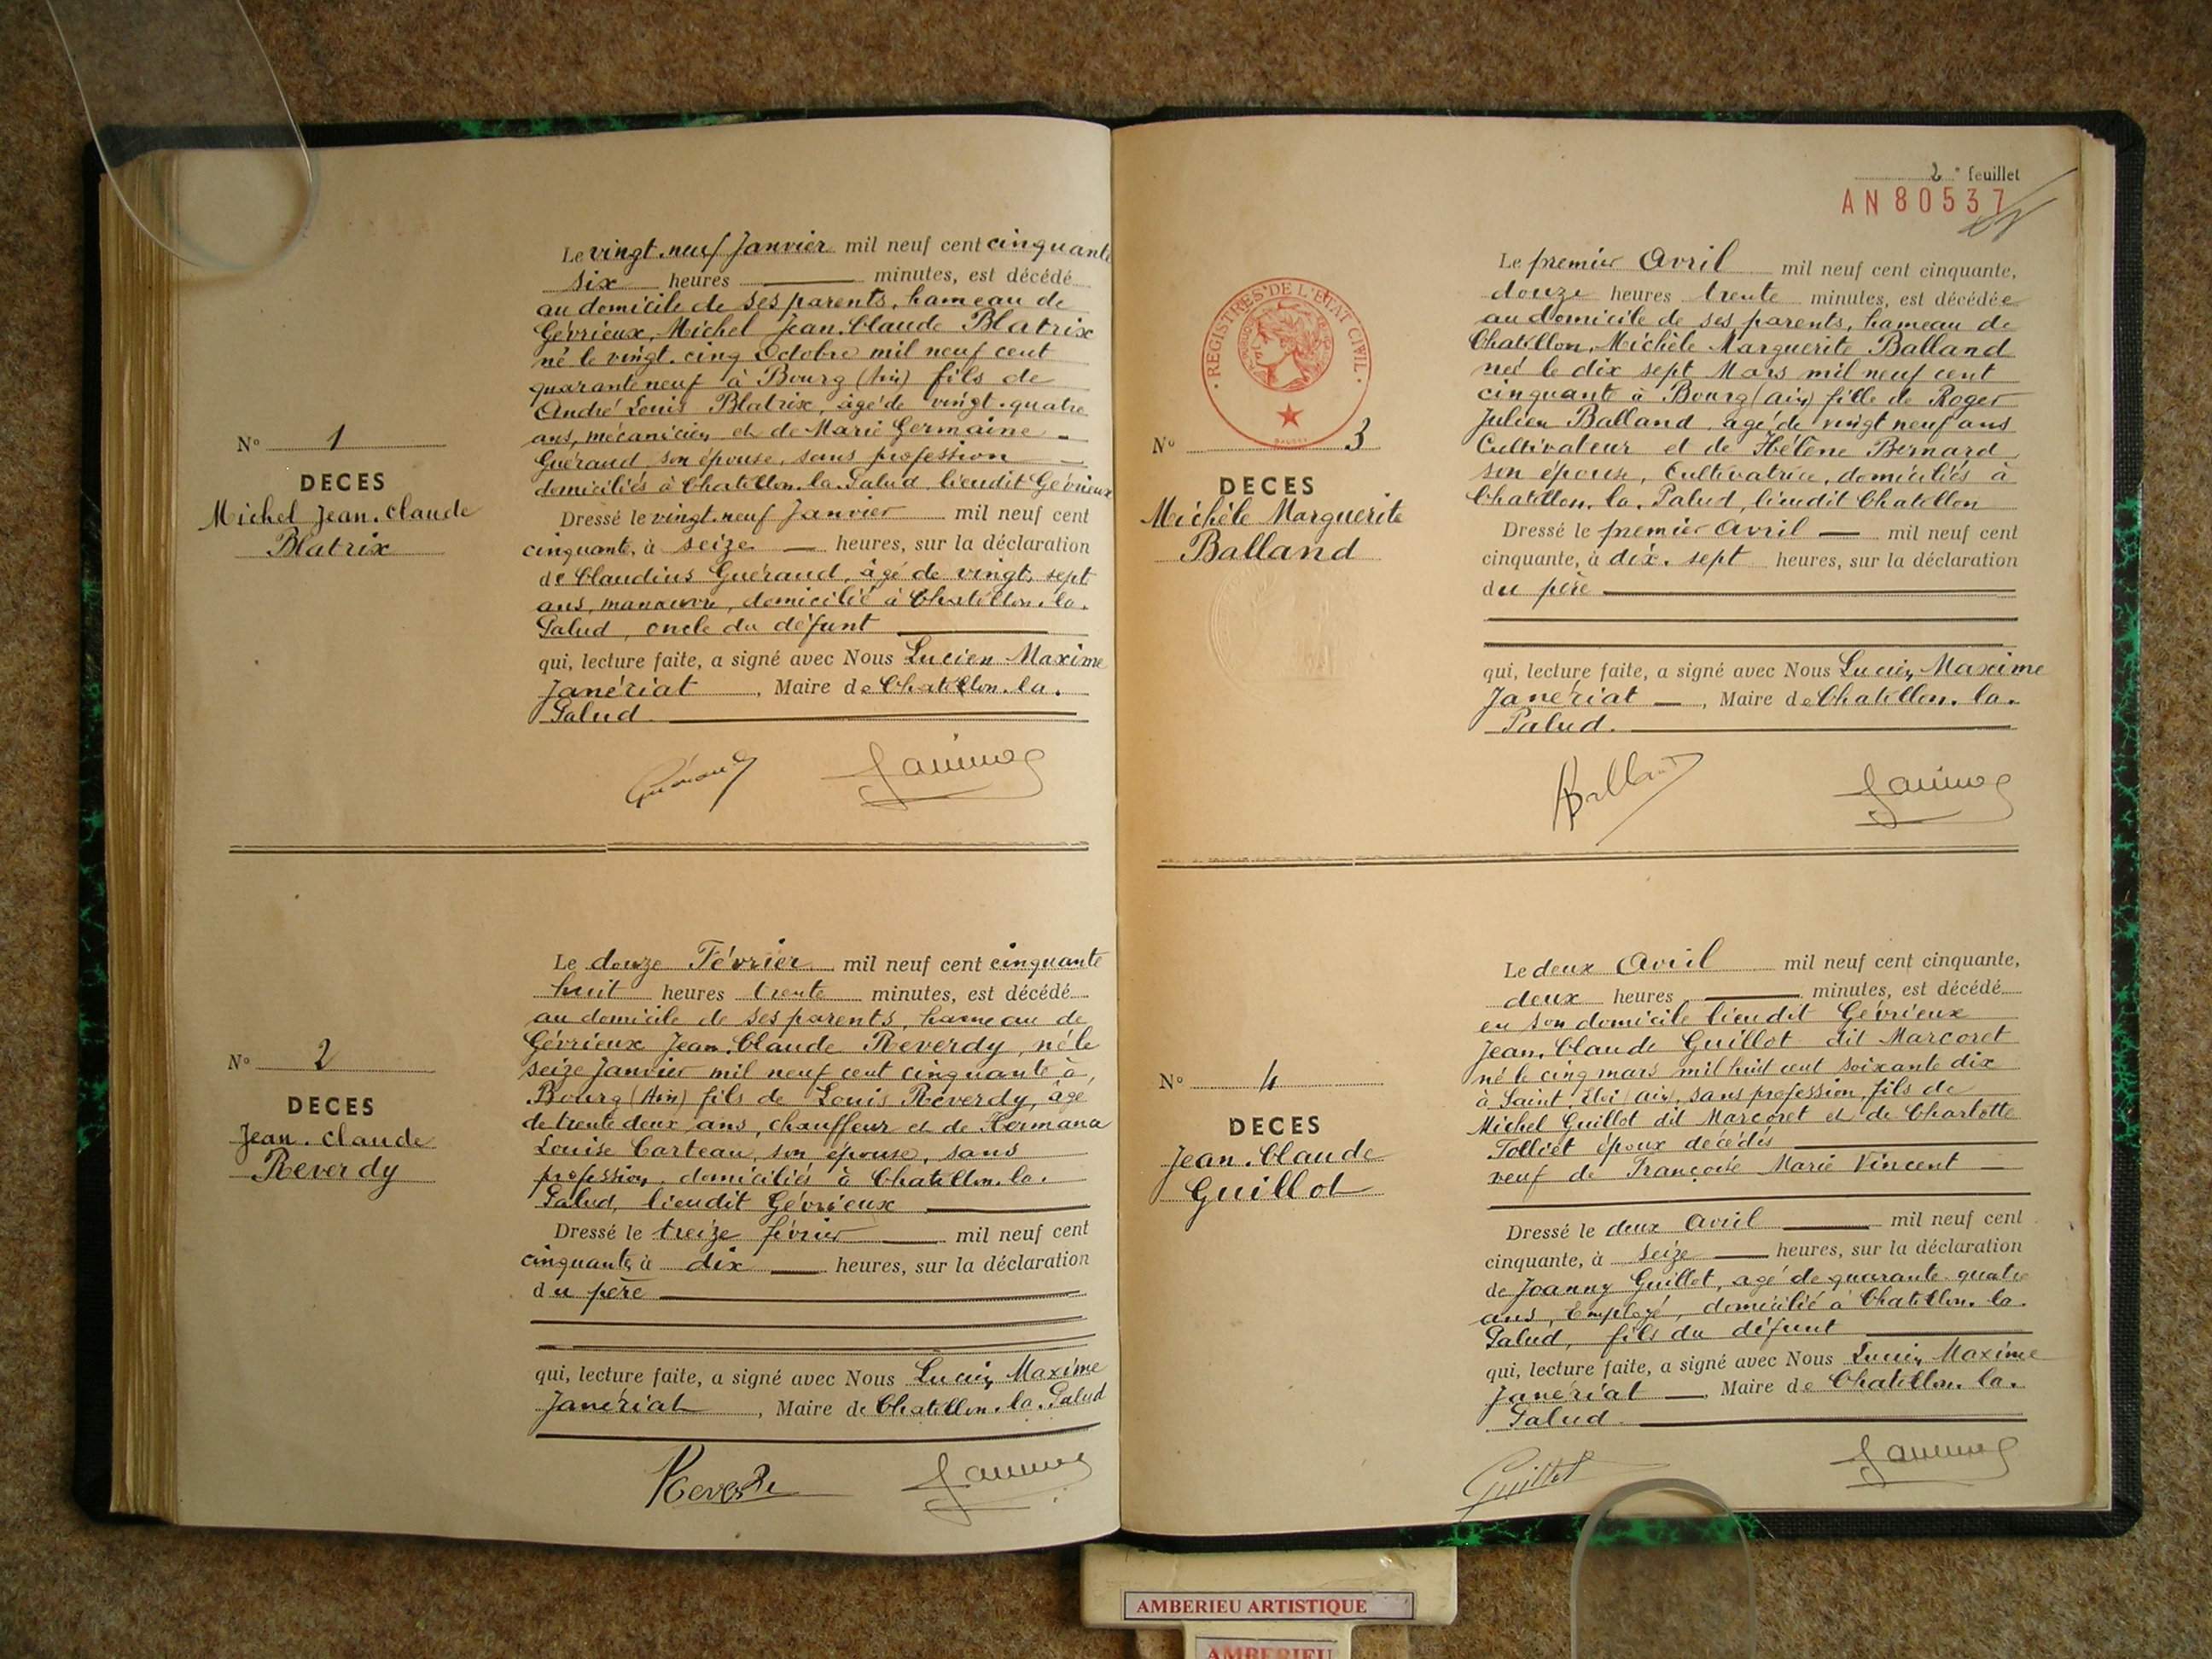 Le vingt-neuf Janvier mil neuf cent cinquante
six heures minutes, est décédé
au domicile de ses parents, hameau de
Gévrieux, Michel Jean-Claude Blatrix
né le vingt-cinq Octobre mil neuf cent
quarante neuf à Bourg (Ain) fils de
André Louis Blatrix, âgé de vingt-quatre
ans, mécanicien et de Marie Germaine
Guéraud son épouse, sans profession
domiciliés à Chatillon-la-Palud, lieudit Gévrieux
N° 1
DECES
Michel Jean-Claude
Blatrix
Dressé le vingt-neuf Janvier mil neuf cent
cinquante, à seize heures, sur la déclaration
de Claudius Guéraud, âgé de vingt-sept
ans, manœuvre, domicilié à Chatillon-la-
Palud, oncle du défunt
qui, lecture faite, a signé avec Nous Lucien Maxime
Janériat, Maire de Chatillon-la-
Palud.
Guéraud
Le douze Février mil neuf cent cinquante
huit heures trente minutes, est décédé
au domicile de ses parents, hameau de
Gévrieux Jean-Claude Reverdy, né le
seize Janvier mil neuf cent cinquante à
Bourg (Ain) fils de Louis Reverdy, âgé
de trente deux ans, chauffeur et de Hermana
Louise Carteau, son épouse, sans
profession, domiciliés à Chatillon-la-
Palud, lieudit Gévrieux
N° 2
DECES
Jean-Claude
Reverdy
Dressé le treize février mil neuf cent
cinquante, à dix heures, sur la déclaration
du père
qui, lecture faite, a signé avec Nous Lucien Maxime
Janériat, Maire de Chatillon-la-Palud
Reverdy
2e feuillet
AN 80537
REGISTRES DE L'ETAT CIVIL
Le premier Avril mil neuf cent cinquante,
douze heures trente minutes, est décédée
au domicile de ses parents, hameau de
Chatillon, Michèle Marguerite Balland
née le dix sept Mars mil neuf cent
cinquante à Bourg (Ain) fille de Roger
Julien Balland, âgé de vingt neuf ans
Cultivateur et de Hélène Bernard
son épouse, Cultivatrice, domiciliés à
Chatillon-la-Palud, lieudit Chatillon
N° 3
DECES
Michèle Marguerite
Balland
Dressé le premier Avril mil neuf cent
cinquante, à dix-sept heures, sur la déclaration
du père
qui, lecture faite, a signé avec Nous Lucien Maxime
Janériat, Maire de Chatillon-la-
Palud.
Balland
Le deux Avril mil neuf cent cinquante,
deux heures minutes, est décédé
en son domicile lieudit Gévrieux
Jean-Claude Guillot dit Marcoret
né le cinq mars mil huit cent soixante dix
à Saint Eloi (Ain), sans profession, fils de
Michel Guillot dit Marcoret et de Charlotte
Tolliet époux décédés
veuf de Françoise Marie Vincent
N° 4
DECES
Jean-Claude
Guillot
Dressé le deux Avril mil neuf cent
cinquante, à seize heures, sur la déclaration
de Joanny Guillot, âgé de quarante-quatre
ans, Employé, domicilié à Chatillon-la-
Palud, fils du défunt
qui, lecture faite, a signé avec Nous Lucien Maxime
Janériat, Maire de Chatillon-la-
Palud.
Guillot
AMBERIEU ARTISTIQUE
AMBERIEU